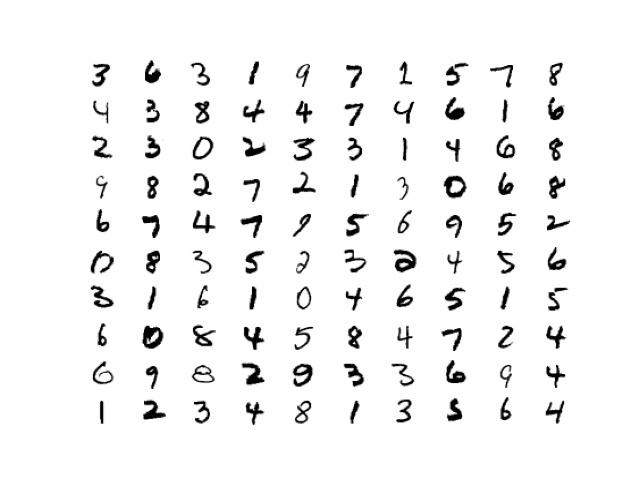 3 6 3 1 9 7 1 5 7 8
4 3 8 4 4 7 4 6 1 6
2 3 0 2 3 3 1 4 6 8
9 8 2 7 2 1 3 0 6 8
6 7 4 7 9 5 6 9 5 2
0 8 3 5 2 3 2 4 5 6
3 1 6 1 0 4 6 5 1 5
6 0 8 4 5 8 4 7 2 4
6 9 8 2 9 3 3 6 9 4
1 2 3 4 8 1 3 5 6 4